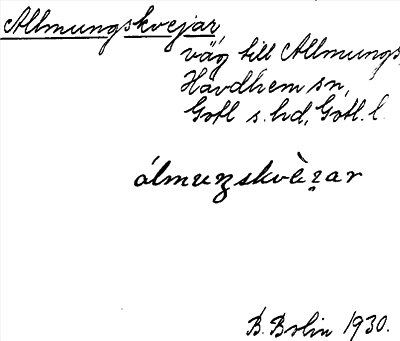 Allmungskvejar,
väg till Allmungs,
Havdhem sn,
Gotl s. hd, Gotl. l.
álmuŋskvèɀ̯ar
B. Bolin 1930.